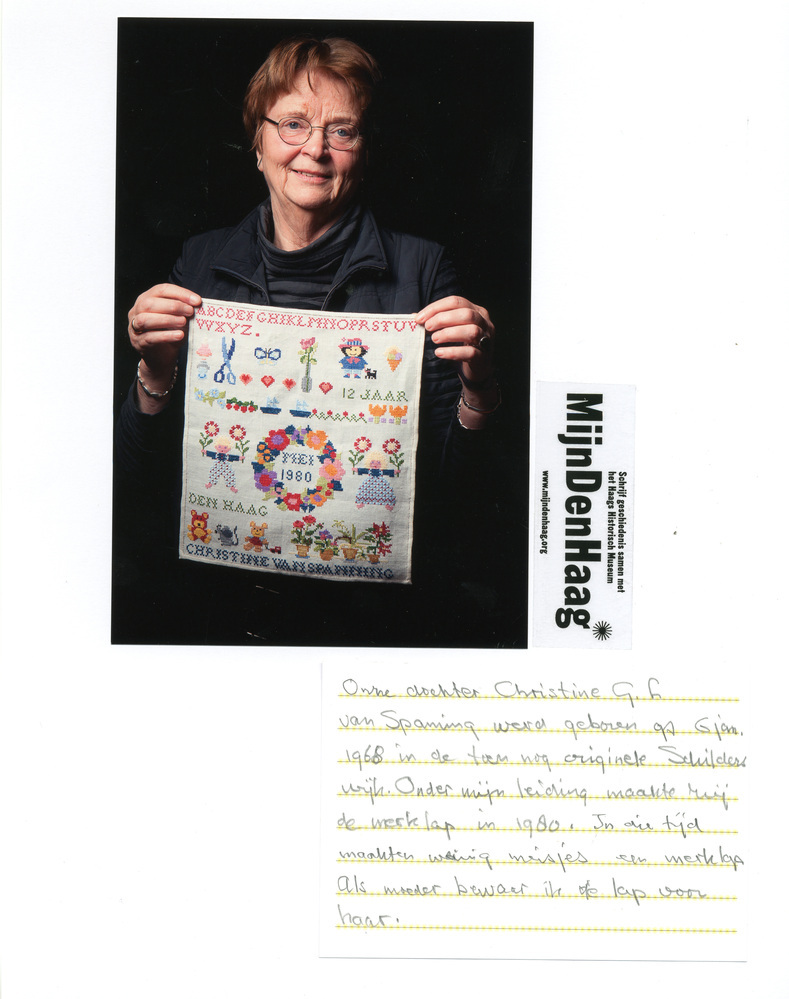 ABCDEFGHIKLMNOPRSTUV
WXYZ.
12 JAAR
MEI
1980
DEN HAAG
CHRISTINE VAN SPANNING
MijnDenHaag
Schrijf geschiedenis samen met
het Haags Historisch Museum
www.mijndenhaag.org
Onze dochter Christine G.
van Spanning werd geboren op 6 jan.
1968 in de toen nog originele Schilders
wijk. Onder mijn leiding maakte zij
de merklap in 1980. In die tijd
maakten weinig meisjes een merklap
Als moeder bewaar ik de lap voor
haar.